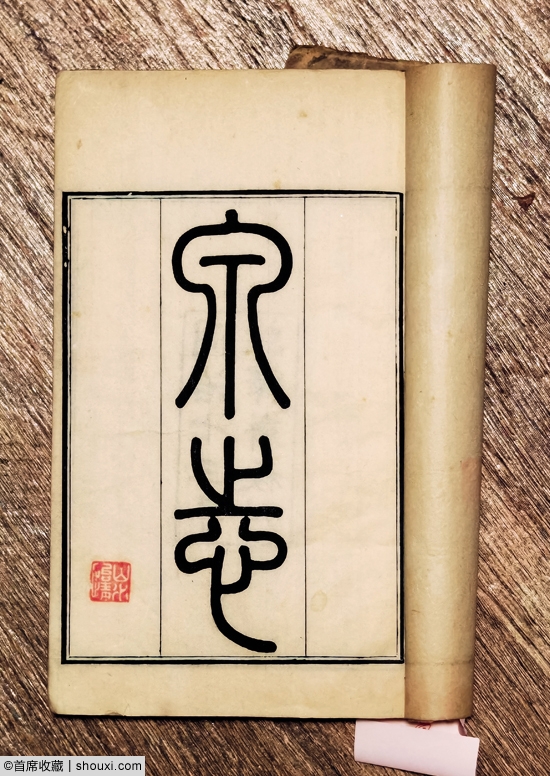 泉志
©首席收藏 | shouxi.com